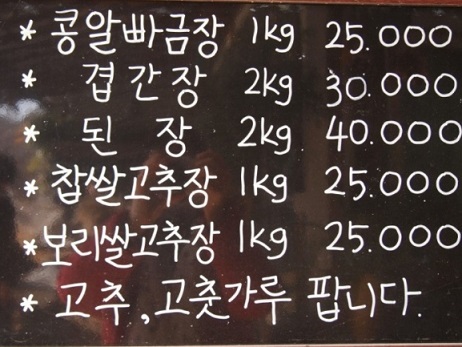 * 콩알빠금장 1kg 25.000
* 겹간장 2kg 30.000
* 된장 2kg 40.000
* 찹쌀고추장 1kg 25.000
* 보리쌀고추장 1kg 25.000
* 고추, 고춧가루 팝니다.